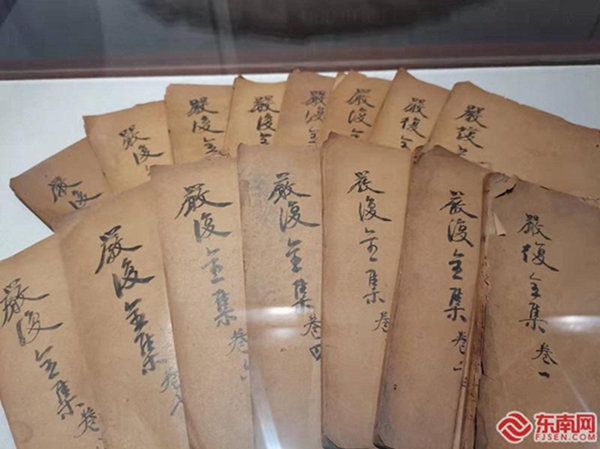 嚴復
嚴復
嚴復全
嚴復全
嚴復全
嚴復
嚴復全
嚴復全
嚴復全集 卷
嚴復全集 卷
嚴復全集 卷
嚴復全集 卷四
嚴復全集 卷
嚴復全集 卷
嚴復全集 卷一
东南网
FJSEN.COM